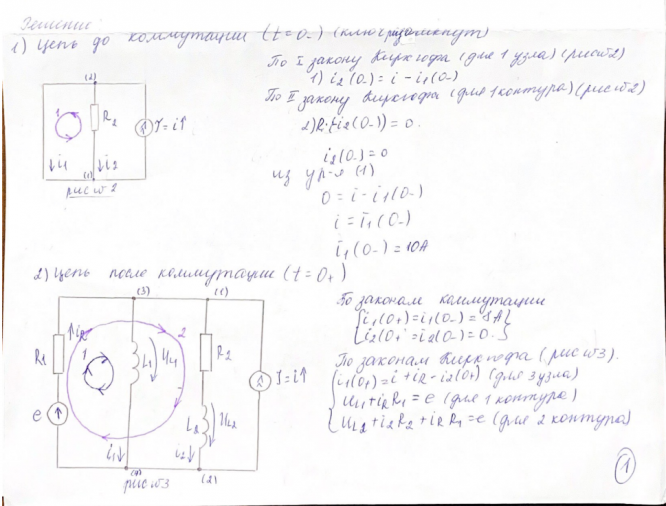 Решение
1) Цепь до коммутации (t=0₋) (ключ разомкнут)
По I закону Кирхгофа (для 1 узла) (рис №2)
1) i₂(0₋) = i − i₁(0₋)
По II закону Кирхгофа (для 1 контура) (рис №2)
2) R·(i₂(0₋)) = 0.
i₂(0₋) = 0
из ур-я (1)
0 = i − i₁(0₋)
i = i₁(0₋)
i₁(0₋) = 10A
(2)
1
R₂
J=i↑
↓i₁
↓i₂
(1)
рис №2
2) Цепь после коммутации (t=0₊)
(3)
(1)
↑iR
2
R₁
1
L₁
UL₁
R₂
J=i↑
e
L₂
UL₂
i₁↓
i₂↓
(2)
рис №3
По законам коммутации
{i₁(0₊)=i₁(0₋)=1A}
{i₂(0₊=i₂(0₋)=0.}
По законам Кирхгофа (рис №3).
{i₁(0₊)=i+iR−i₂(0₊) (для 3 узла)
UL₁+iRR₁=e (для 1 контура)
UL₂+i₂R₂+iRR₁=e (для 2 контура)
1